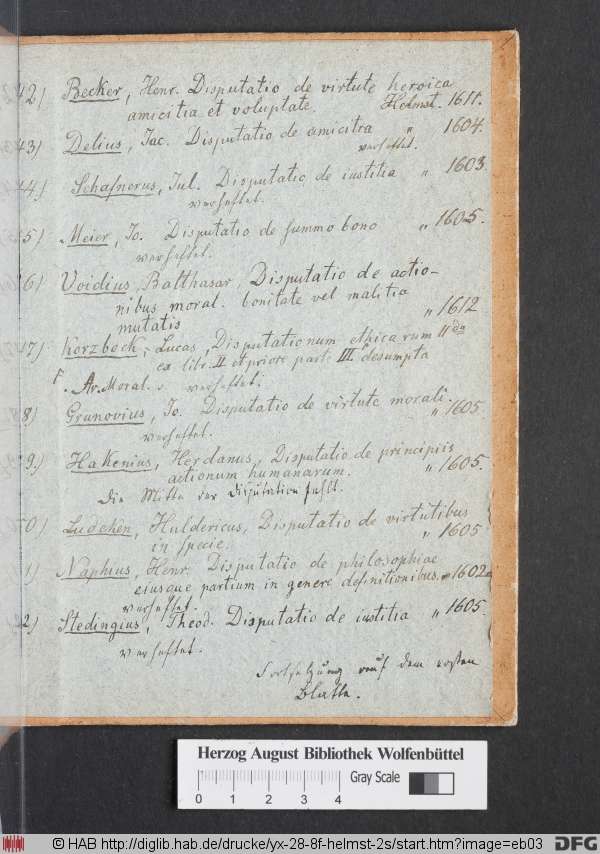 42) Becker, Henr. Disputatio de virtute heroica
amicitia et voluptate. Helmst. 1611.
43) Delius, Jac. Disputatio de amicitia " 1604.
verheftet.
44) Schafnerus, Jul. Disputatio de iustitia " 1603
verheftet.
5) Meier, Jo. Disputatio de summo bono " 1605.
verheftet.
6) Voidius, Balthasar, Disputatio de actio-
nibus moral. bonitate vel malitia
mutatis " 1612
47) Korzbock, Lucas, Disputationum ethicarum 11da
ex libr. II et priore parte III desumpta
Av. Moral. verheftet.
8) Grunovius, Jo. Disputatio de virtute morali.
verheftet. " 1605.
9.) Hakenius, Herdanus, Disputatio de principiis
actionum humanarum. " 1605.
Die Mitte der Disputation fehlt.
0) Ludchen, Huldericus, Disputatio de virtutibus
in specie. " 1605
1) Naphius, Henr. Disputatio de philosophiae
eiusque partium in genere definitionibus. " 1602
verheftet.
2) Stedingius, Theod. Disputatio de iustitia " 1605.
verheftet.
Fortsetzung auf dem ersten
Blatte.
Herzog August Bibliothek Wolfenbüttel
Gray Scale
0 1 2 3 4
© HAB http://diglib.hab.de/drucke/yx-28-8f-helmst-2s/start.htm?image=eb03
DFG